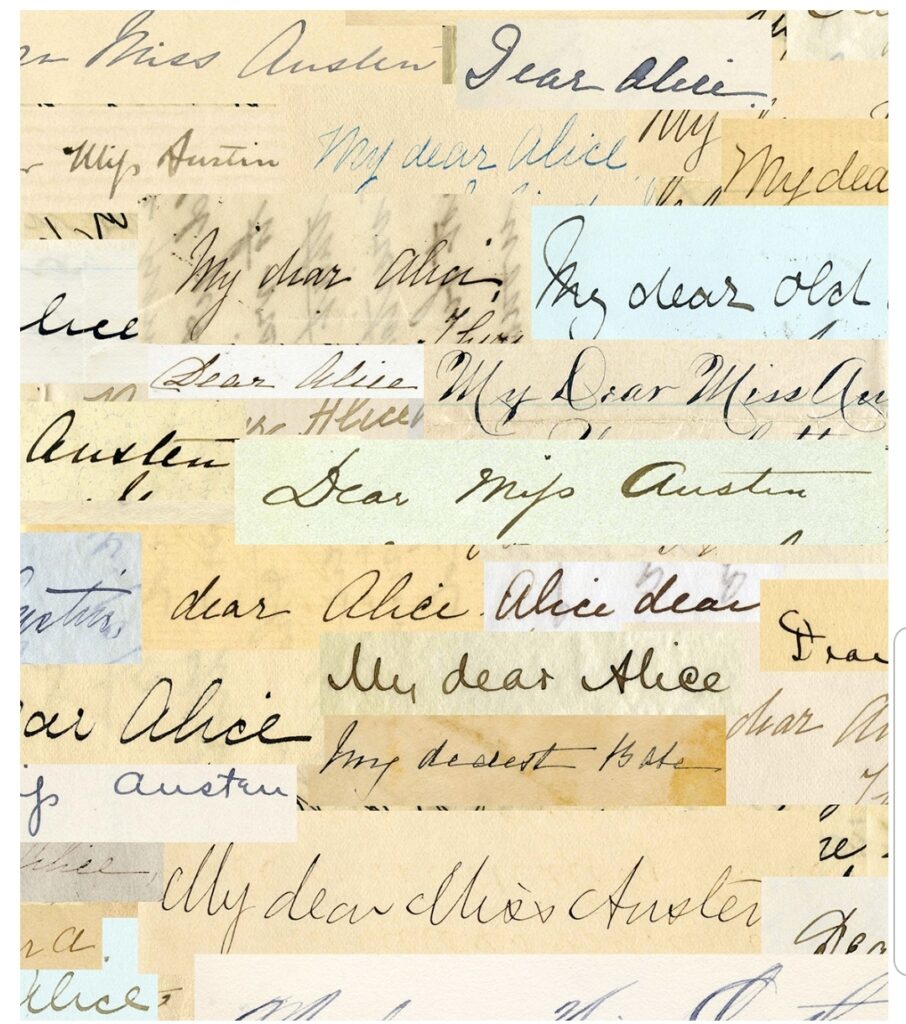 Miss Austen
Dear Alice
Miss Austin
My dear Alice
My
My dea
My dear Alice,
My dear old
lice
Dear Alice
My Dear Miss Au
Alice
Austen
Dear Miss Austen
dear Alice
Alice dear
Dear
My dear Alice
ear Alice
dear A
My dearest Babe
ss Austen
Alice
My dear Miss Austen
re
Dea
r A
Alice